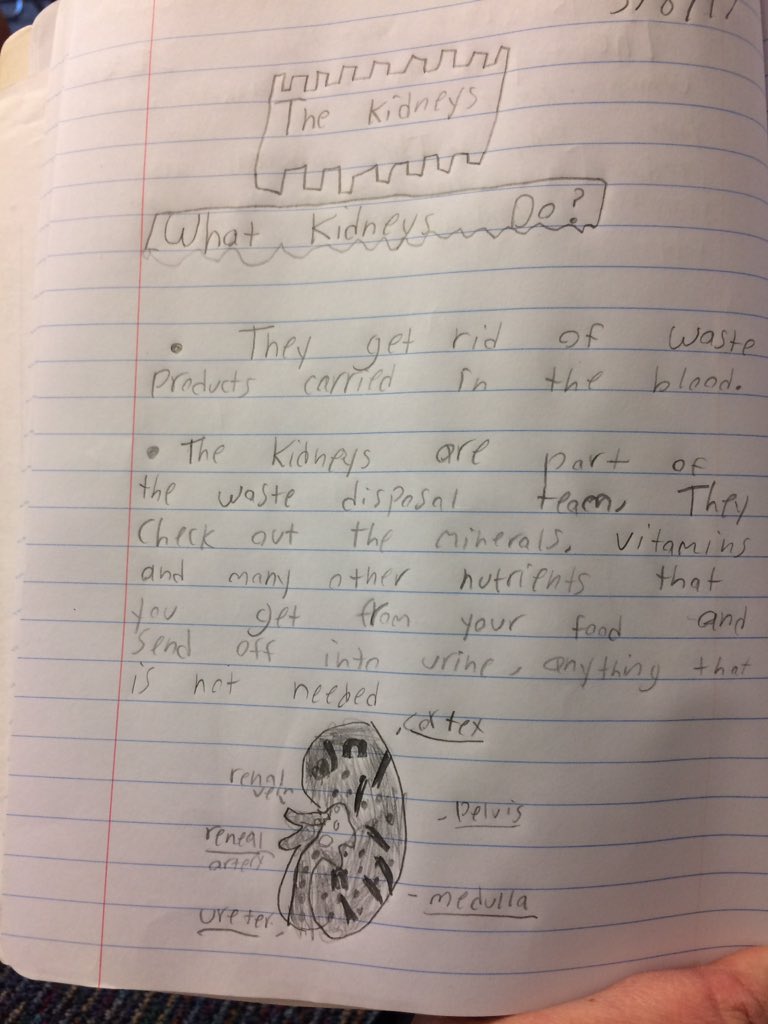 The Kidneys
What Kidneys Do?
• They get rid of waste
products carried in the blood.
• The Kidneys are part of
the waste disposal team, They
Check out the minerals, vitamins
and many other nutrients that
you get from your food and
send off into urine, anything that
is not needed
cortex
renal
vein
pelvis
reneal
artery
medulla
ureter